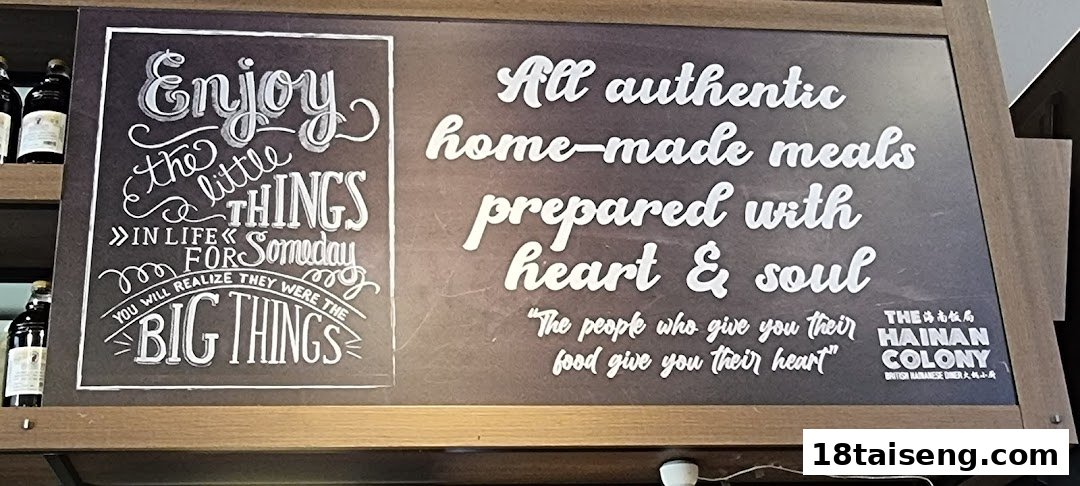 Enjoy
the little
THINGS
»IN LIFE«
FOR Someday
YOU WILL REALIZE THEY WERE THE
BIG THINGS
All authentic
home-made meals
prepared with
heart & soul
"The people who give you their
food give you their heart"
THE 海南饭店
HAINAN
COLONY
BRITISH HAINANESE DINER
18taiseng.com